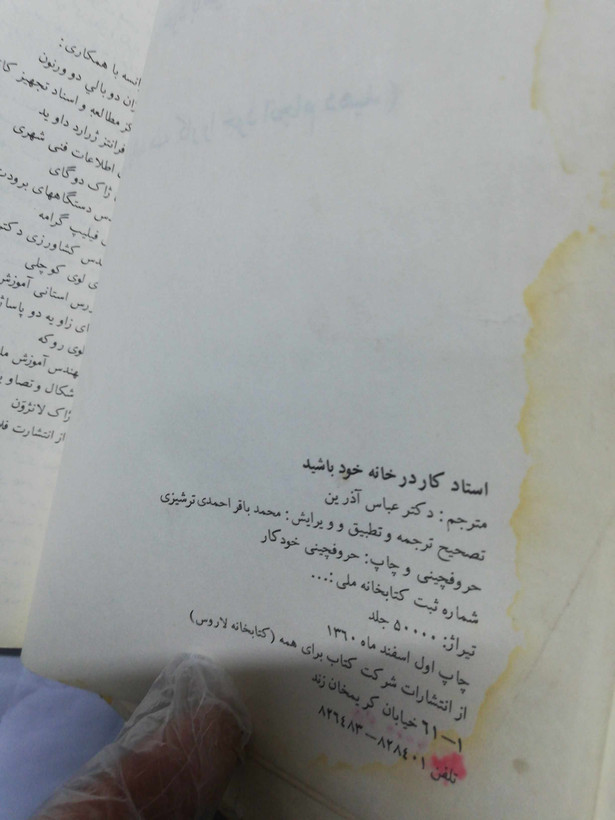 انسه با همکاری:
ان دوبالي دو ورنون
ز مطالعه و اسناد تجهیز
فرانتز ژرارد داوید
اطلاعات فنی شهری
ژاک دوگای
دستگاههای برودت
فیلیپ گرامه
کشاورزی
لوی کوچلی
استانی آموزش
ای زاویه دو
لوی روکه
هندس آموزش
شکال و تصاو
ژاک لانژون
از انتشارت
استاد کار در خانه خود باشید
مترجم: دکتر عباس آذرین
تصحیح ترجمه و تطبیق و ویرایش: محمد باقر احمدی ترشیزی
حروفچینی و چاپ: حروفچینی خودکار
شماره ثبت کتابخانه ملی:...
تیراژ: ۵۰۰۰۰ جلد
چاپ اول اسفند ماه ۱۳۶۰
از انتشارات شرکت کتاب برای همه (کتابخانه لاروس)
۱—۶۱ خیابان کریمخان زند
تلفن ۸۲۸۴۰۱—۸۲۶۴۸۳